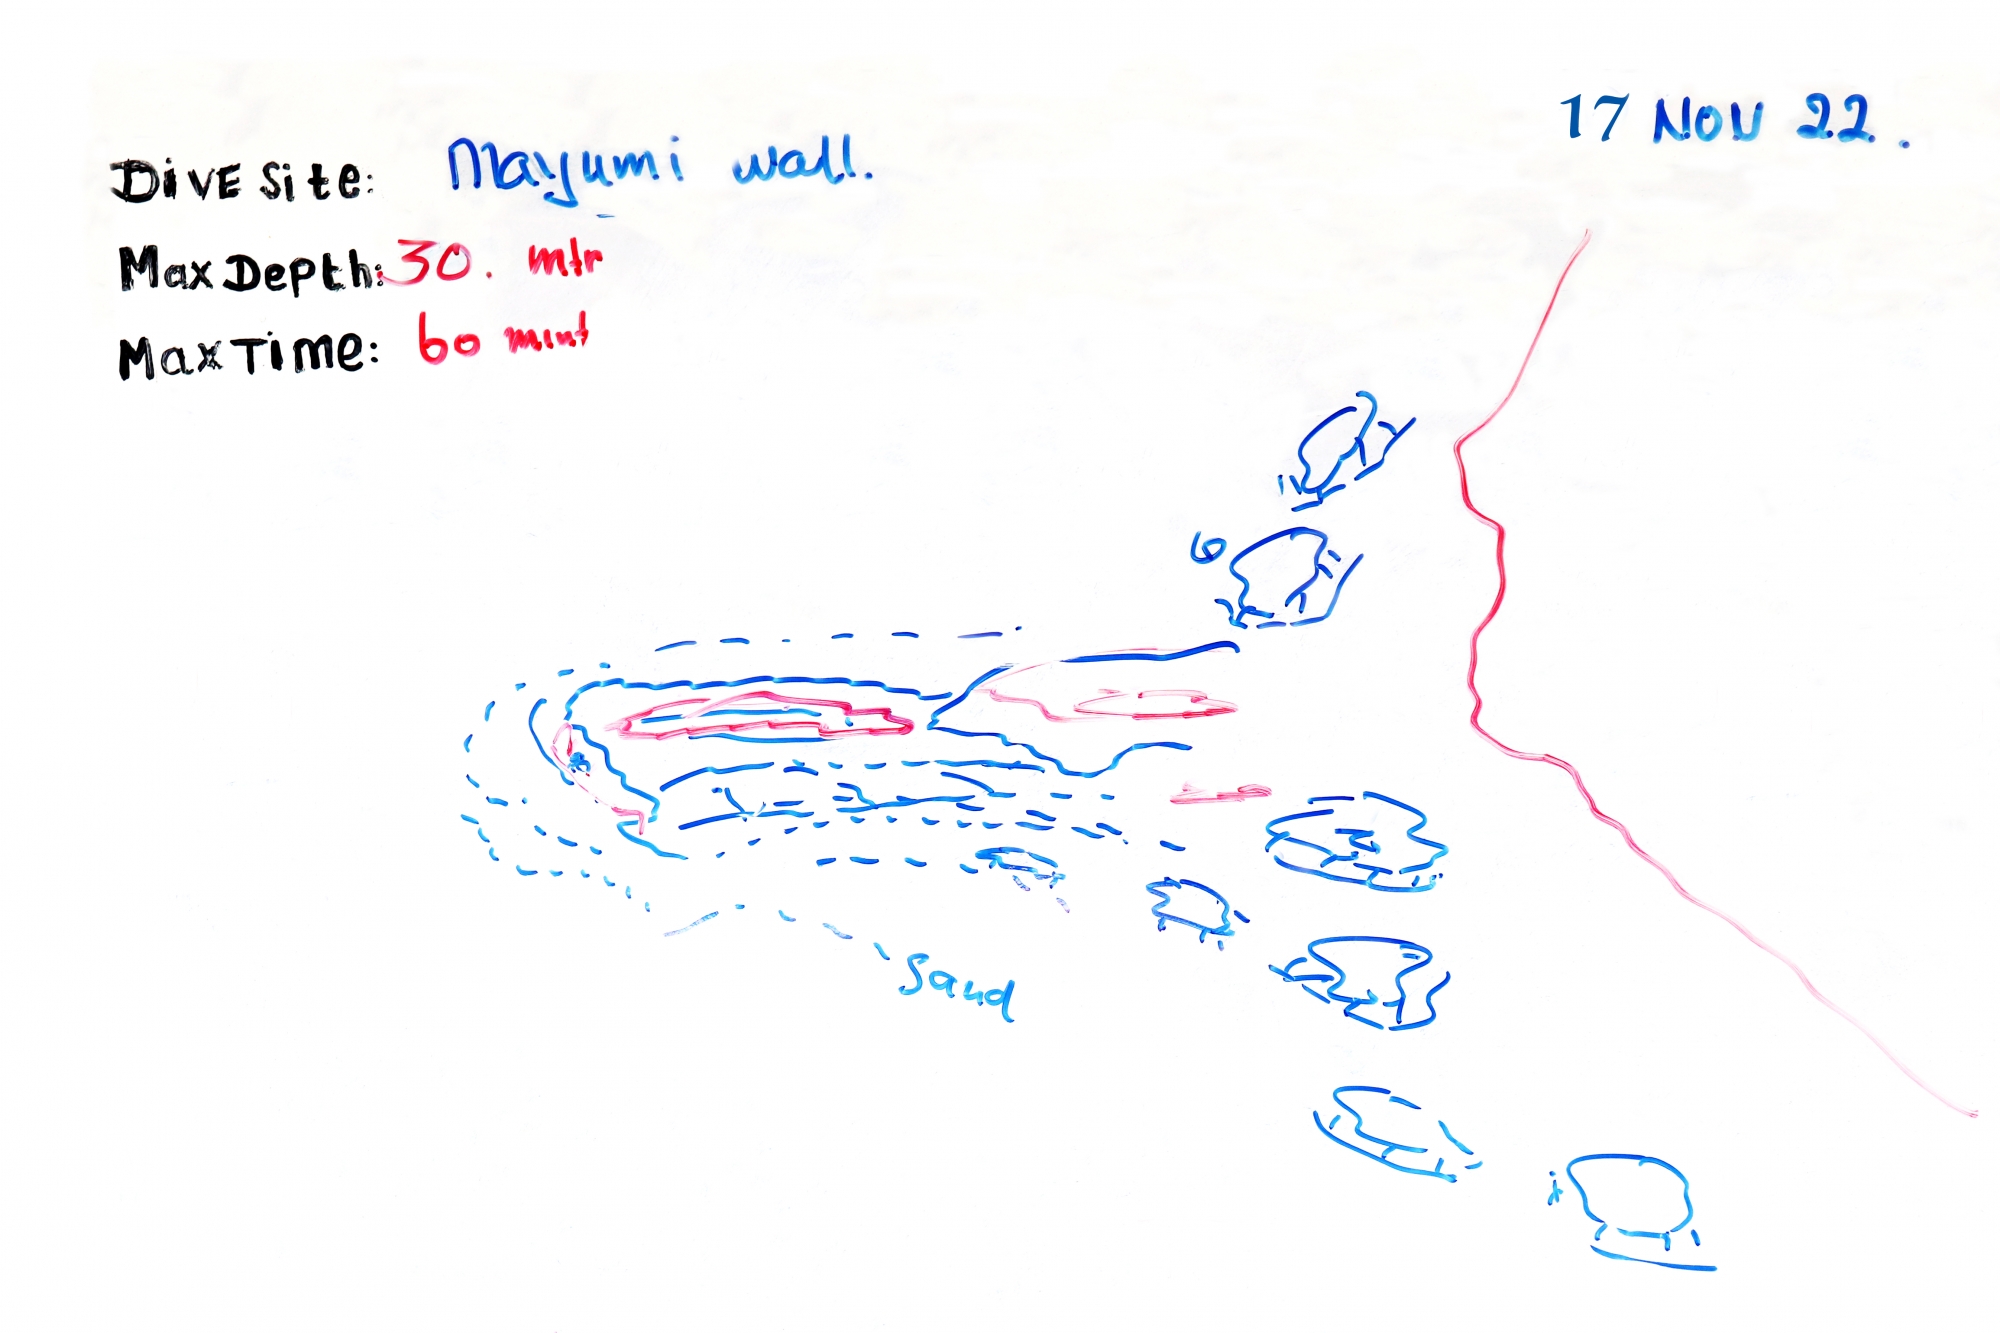 17 NOV 22.
DiVE Site: Mayumi wall.
Max Depth: 30. mtr
Max Time: 60 mint
Sand